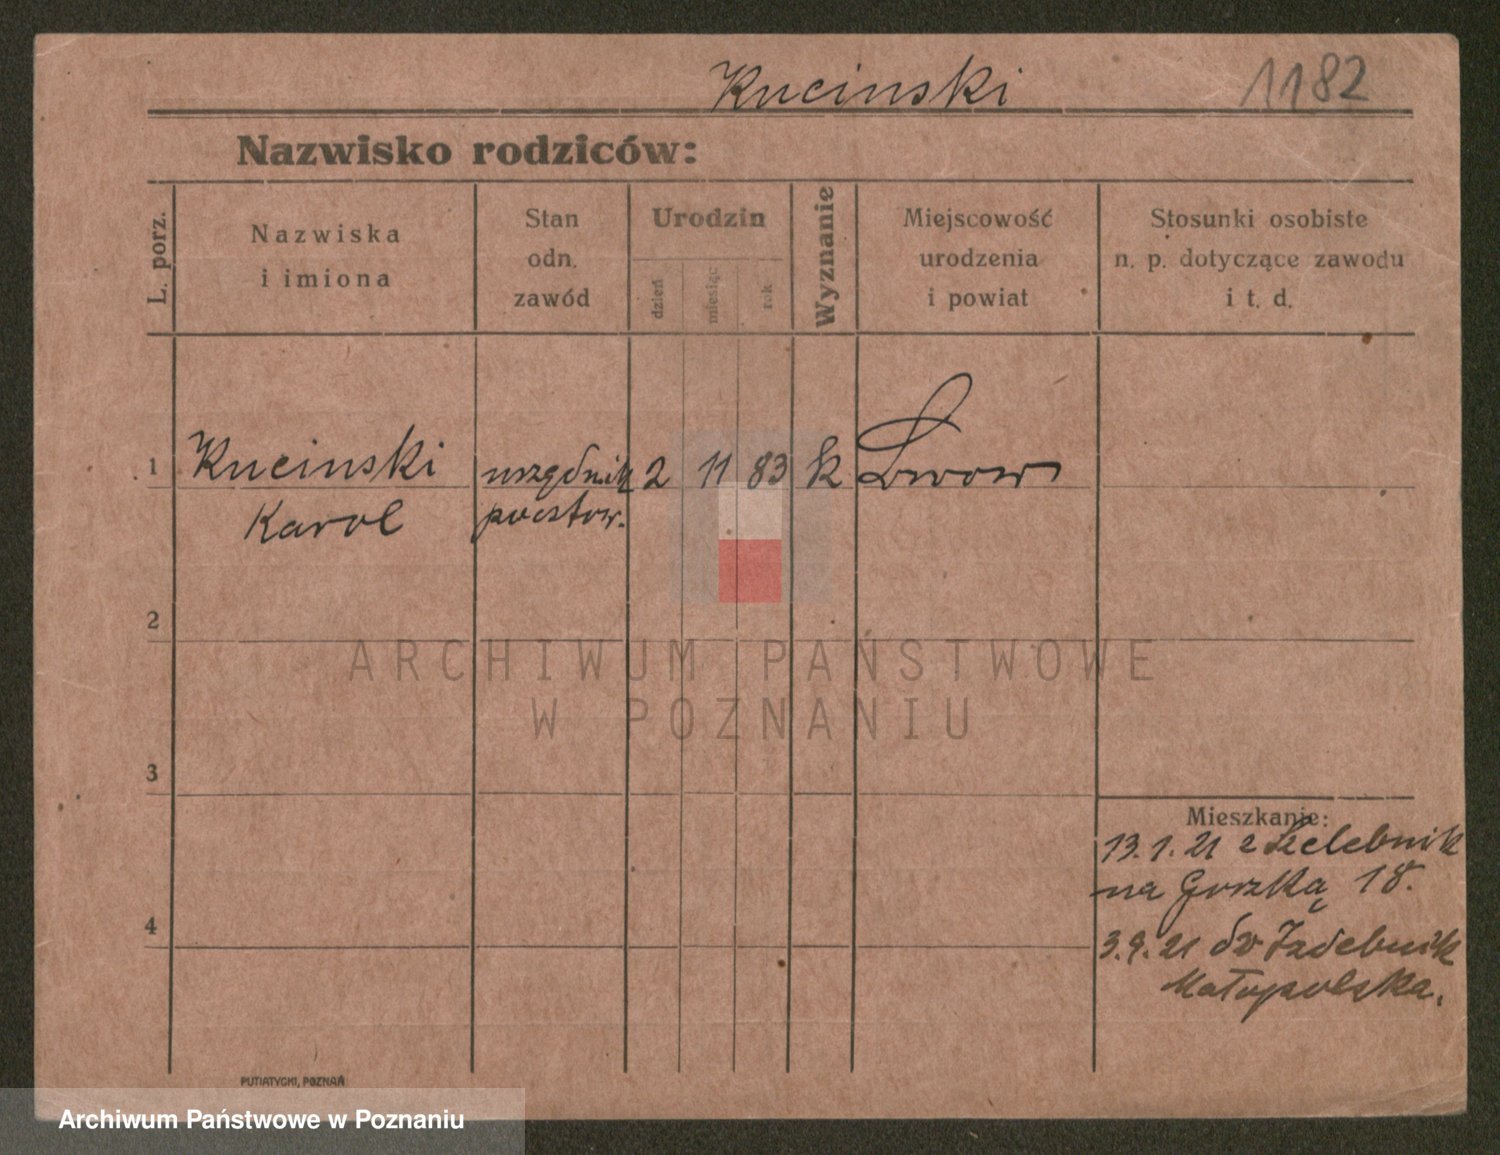 Kucinski 1182
Nazwisko rodziców:
L. porz.
Nazwiska
i imiona
Stan
odn.
zawód
Urodzin
dzień
miesiąc
rok
Wyznanie
Miejscowość
urodzenia
i powiat
Stosunki osobiste
n. p. dotyczące zawodu
i t. d.
1 Kucinski urzędnik 2 11 83 k Lwow
Karol pocztow.
2
ARCHIWUM PAŃSTWOWE
W POZNANIU
3
Mieszkanie:
13.1.21 z
na Gorzką 18.
4
3.9.21 do Izdebnik
Małopolska.
PUTIATYCKI, POZNAŃ
Archiwum Państwowe w Poznaniu